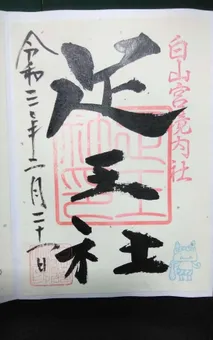 白山宮境内社
足王社
令和二年二月二十一日